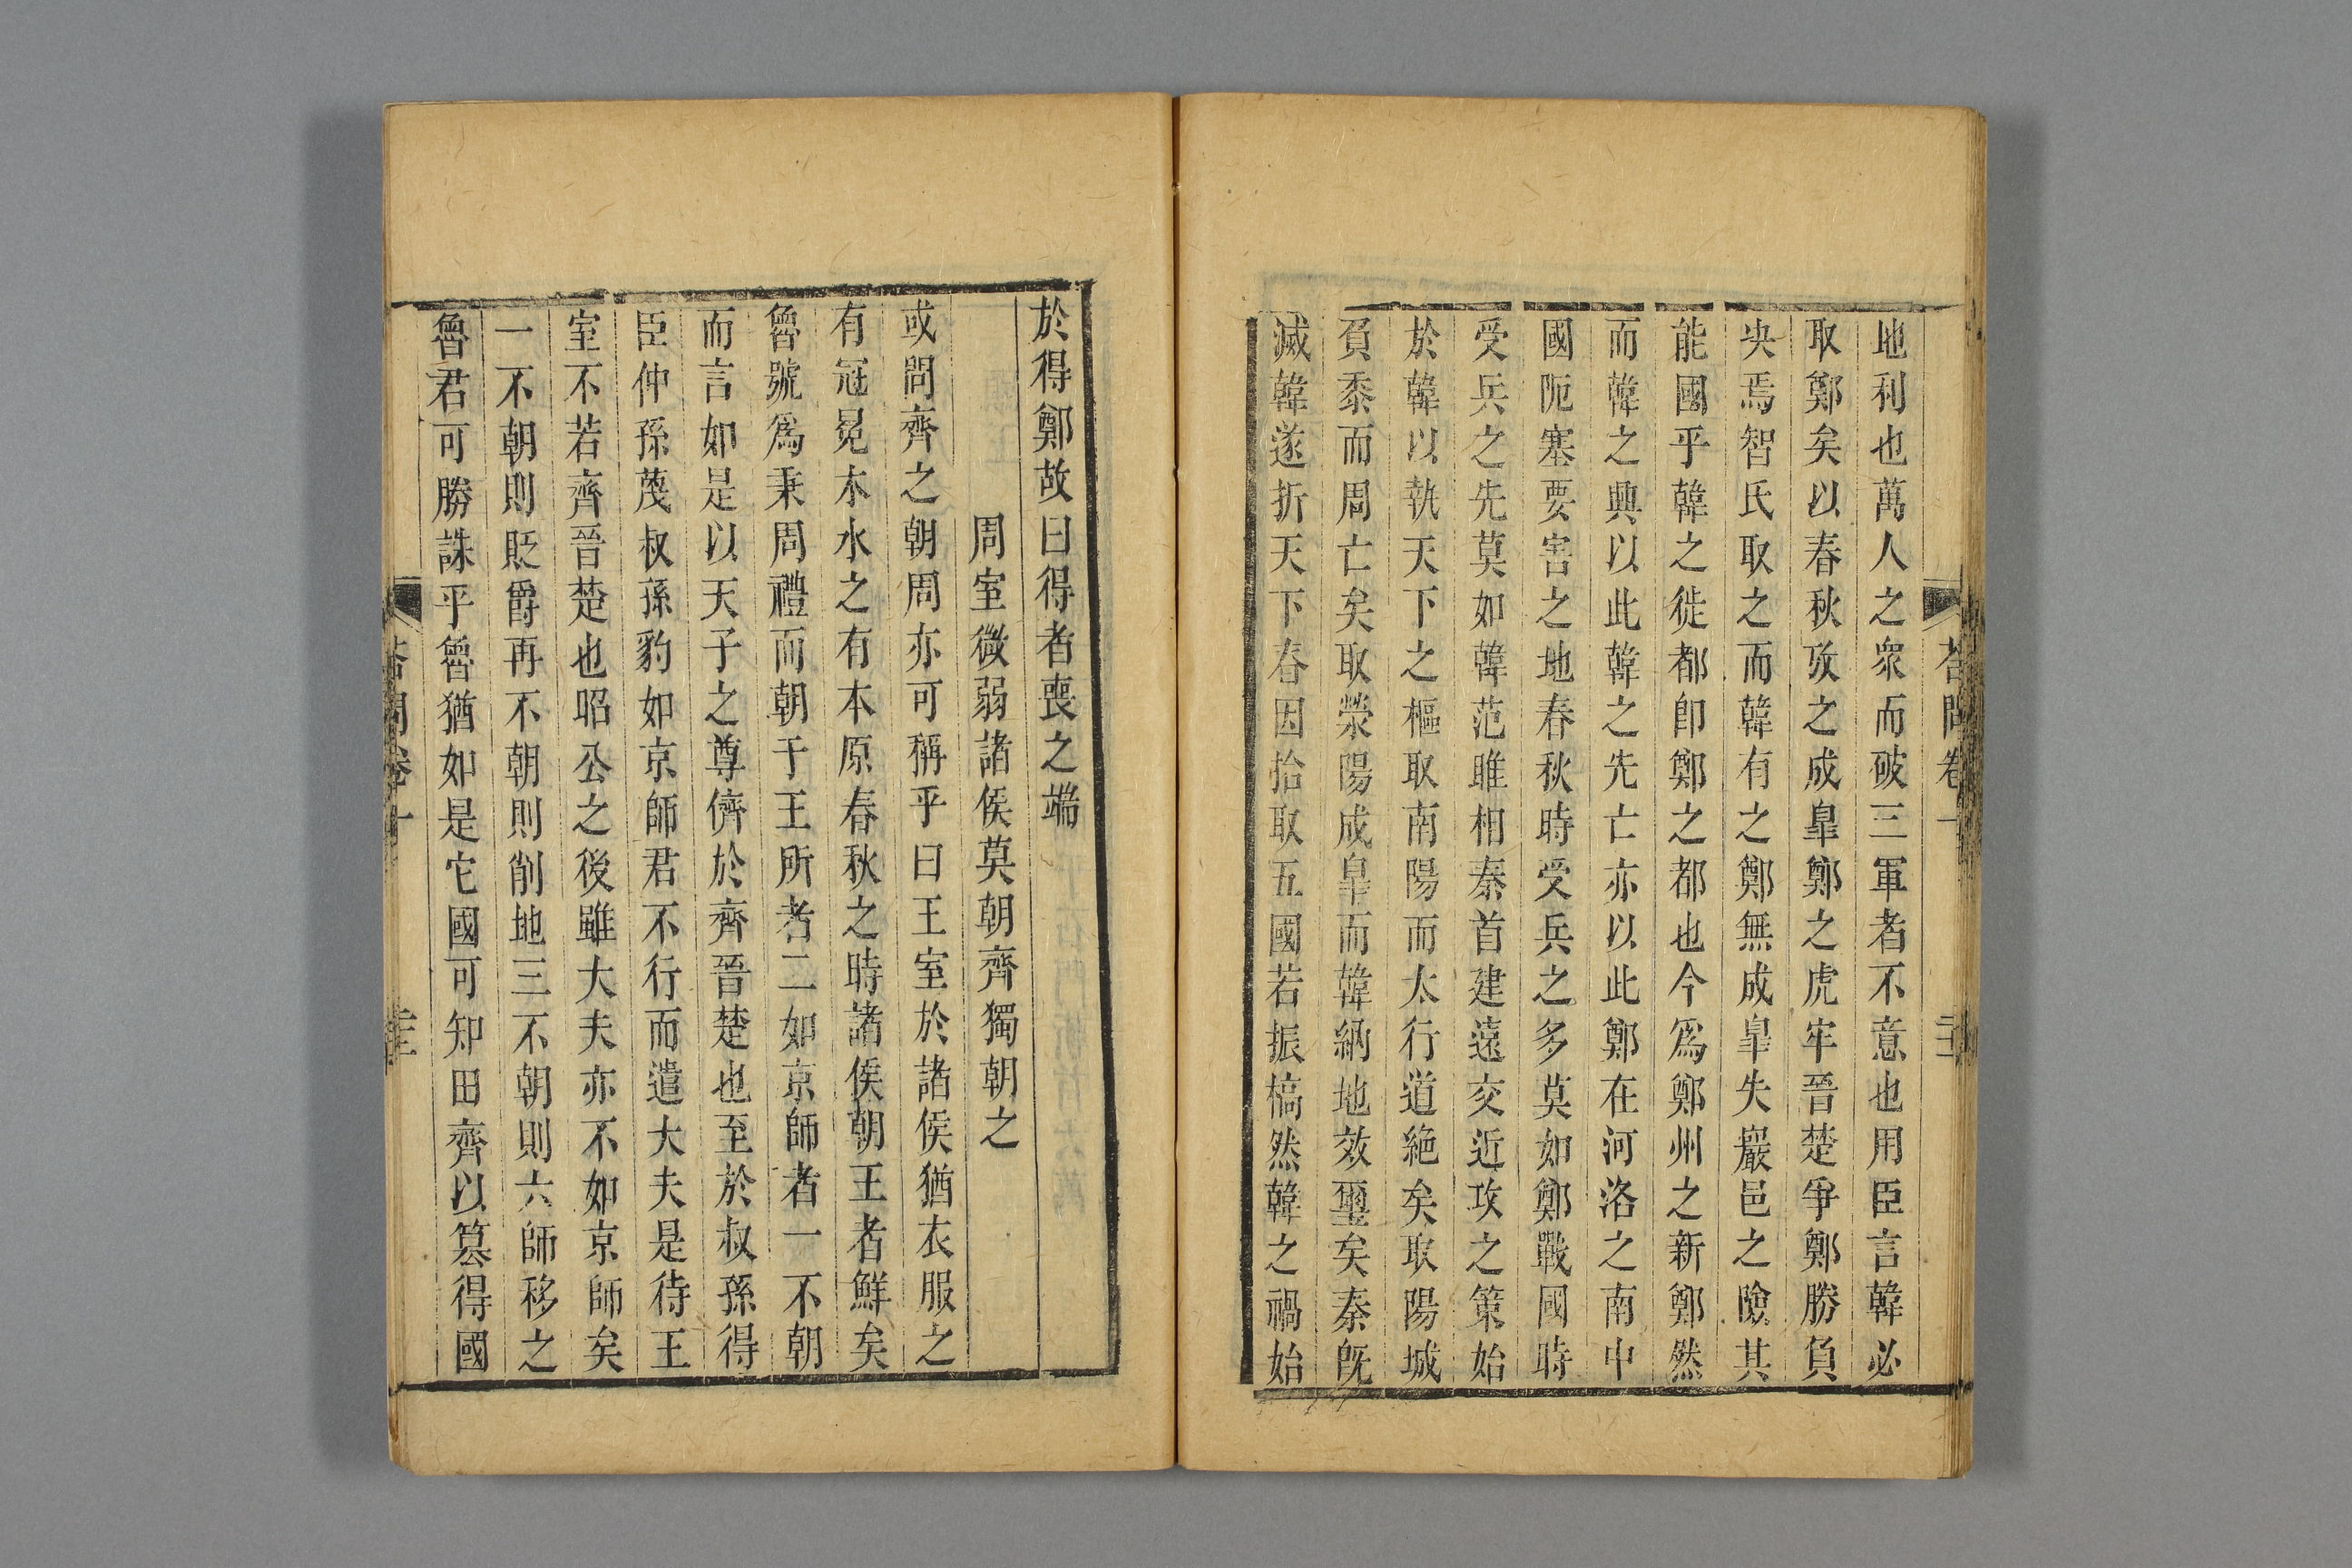 地利也萬人之衆而破三軍者不意也用臣言韓必
取鄭矣以春秋攷之成臯鄭之虎牢晉楚爭鄭勝負
央焉智氏取之而韓有之鄭無成臯失巖邑之險其
能國乎韓之徙都卽鄭之都也今爲鄭州之新鄭然
而韓之興以此韓之先亡亦以此鄭在河洛之南中
國阨塞要害之地春秋時受兵之多莫如鄭戰國時
受兵之先莫如韓范雎相秦首建遠交近攻之策始
於韓以執天下之樞取南陽而太行道絶矣取陽城
負黍而周亡矣取滎陽成臯而韓納地效璽矣秦旣
滅韓遂折天下春因拾取五國若振槁然韓之禍始
於得鄭故曰得者喪之端
周室微弱諸侯莫朝齊獨朝之
或問齊之朝周亦可稱乎曰王室於諸侯猶衣服之
有冠冕木水之有本原春秋之時諸侯朝王者鮮矣
魯號爲秉周禮而朝于王所者二如京師者一不朝
而言如是以天子之尊儕於齊晉楚也至於叔孫得
臣仲孫蔑叔孫豹如京師君不行而遣大夫是待王
室不若齊晉楚也昭公之後雖大夫亦不如京師矣
一不朝則貶爵再不朝則削地三不朝則六師移之
魯君可勝誅乎魯猶如是它國可知田齊以簒得國
荅問卷十